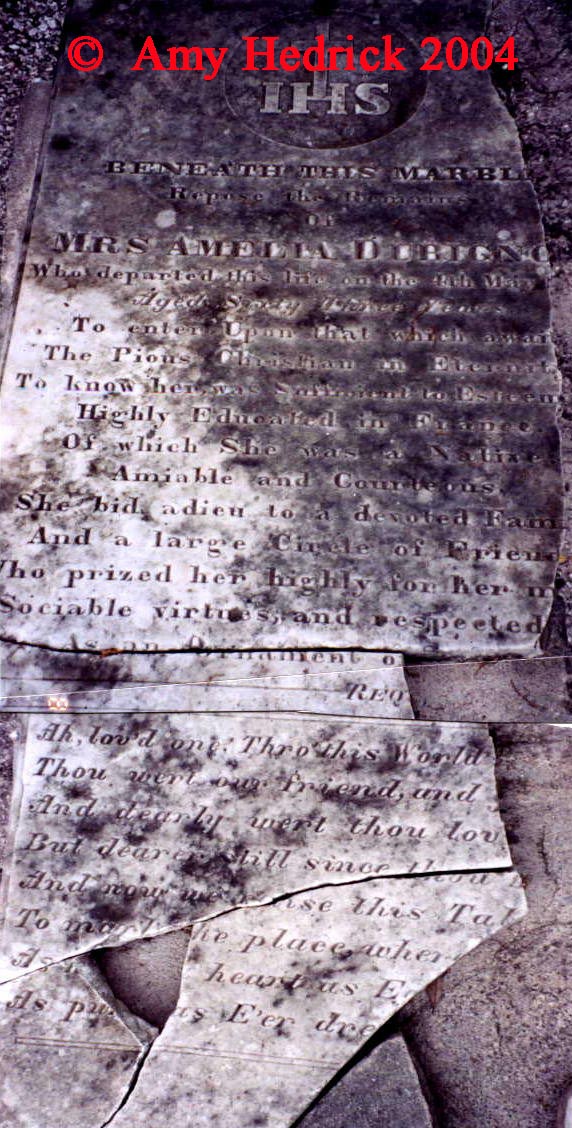 © Amy Hedrick 2004
IHS
BENEATH THIS MARBL
Repose the Remains
Of
MRS AMELIA DUBIGNO
Who departed this life on the 4th May
Aged Sixty Three Years
To enter Upon that which awai
The Pious Christian in Eternit
To know her was Sufficient to Esteem
Highly Educated in France
Of which She was a Native
Amiable and Courteous
She bid adieu to a devoted Fami
And a large Circle of Frien
Who prized her highly for her m
Sociable virtues, and respected
As an Ornament o
REQ
Ah, lov'd one! Thro' this World
Thou wert our friend, and
And dearly wert thou lov
But dearer still since
And now we raise this Tal
To mark the place, wher
As heart as E
As pu as E'er dre